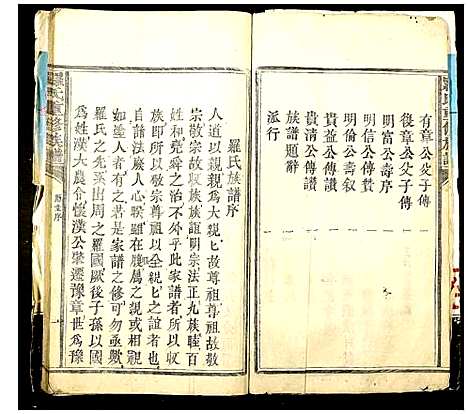 有章公父子傳
復章公父子傳
明富公壽序
明信公傳贊
明倫公壽叙
貴益公傳讚
貴清公傳讚
族譜題辭
派行
羅氏族譜序
人道以親親為大親親故尊祖尊祖故敬
宗敬宗故收族收族誼明宗法正九族睦百
姓和堯舜之治不外此家譜者所以收
族使人知敬宗尊祖以全親親之誼者也
自譜法廢人心睽雖在屬之親或相待
如塗人者有之若是家譜之修可勿亟歟
羅氏之先出周之羅國厥後子孫以國
為姓漢大農令懷漢公肇遷豫章世為豫